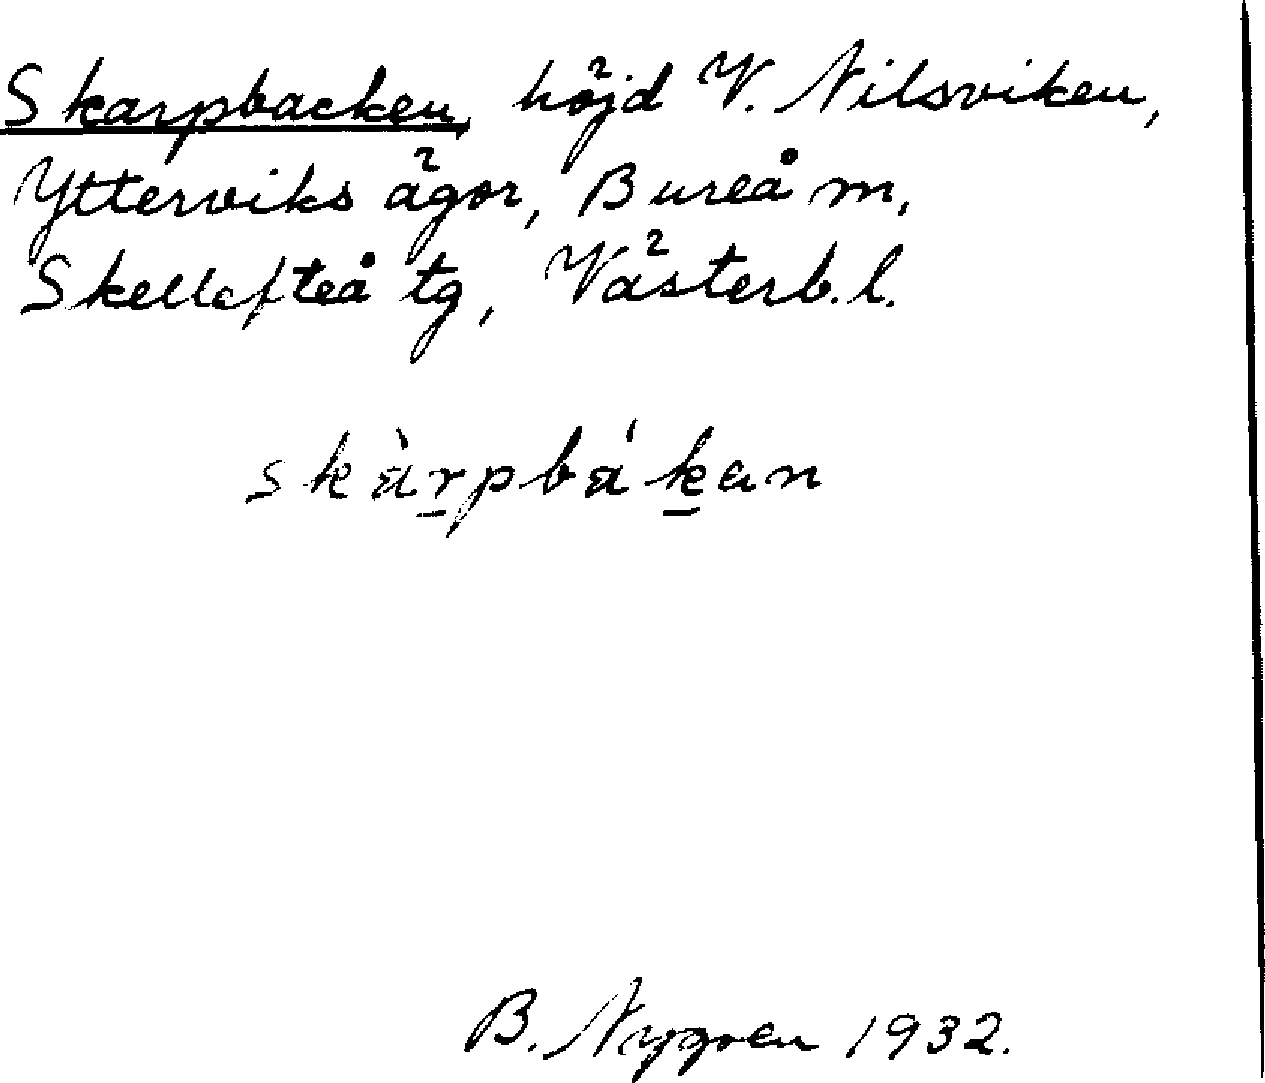 Skarpbacken, höjd V. Nilsviken,
Ytterviks ägor, Bureå m,
Skellefteå tg, Västerb. l.
skàrpbákan
B. Nygren 1932.